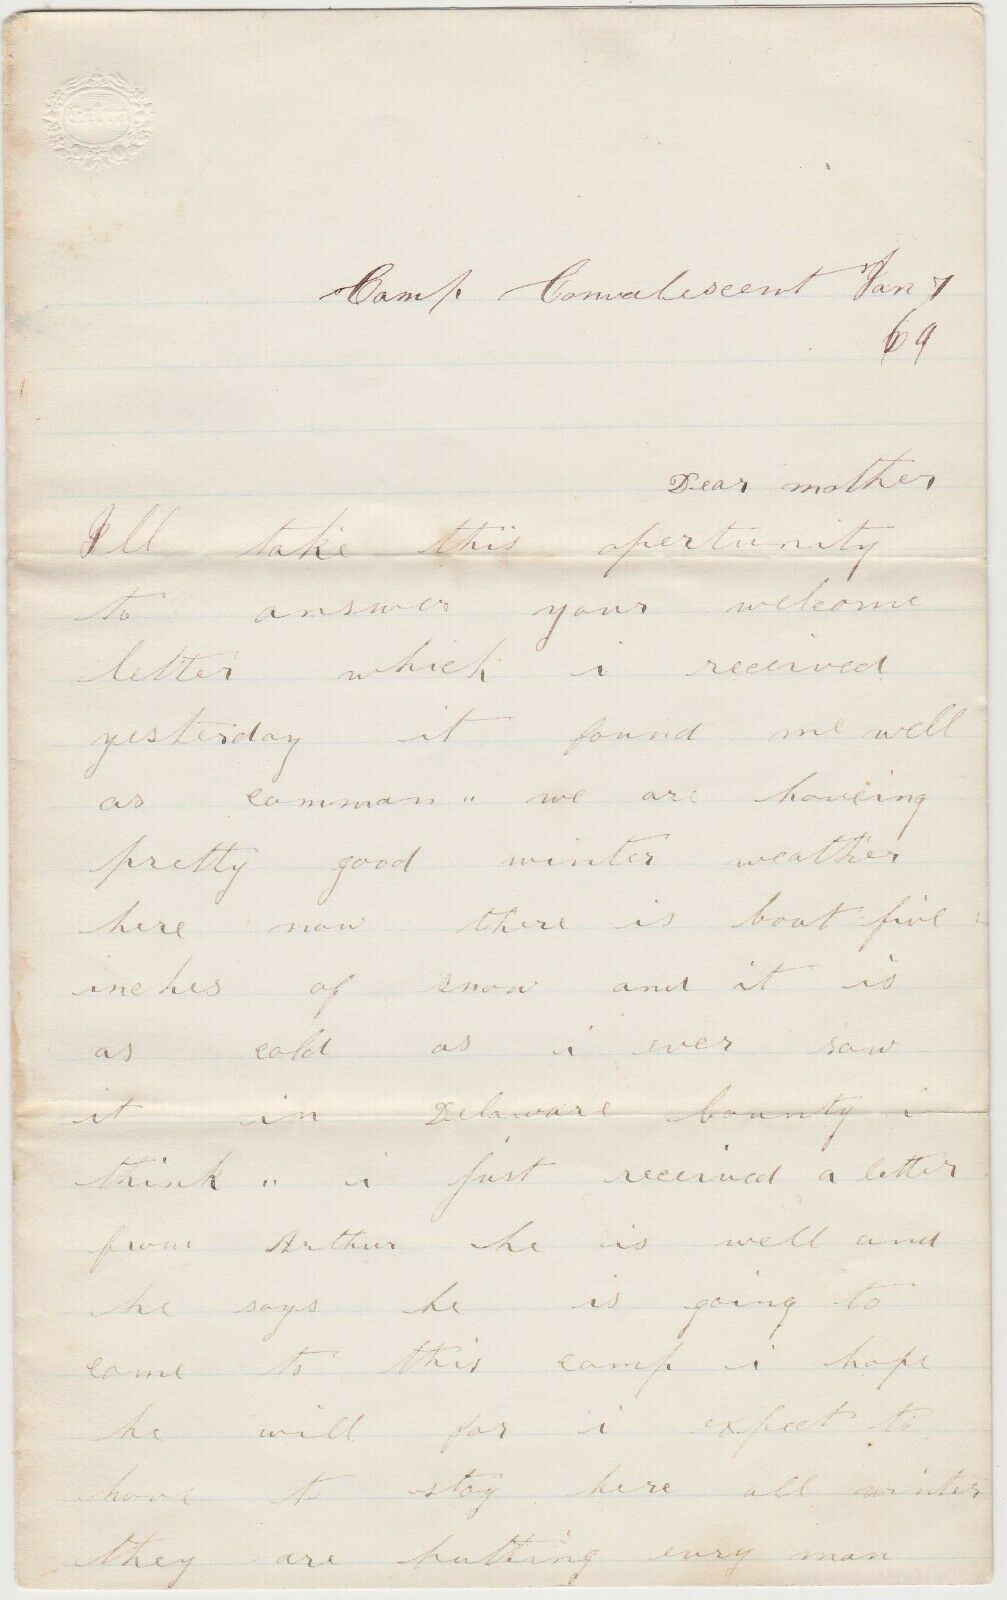 Camp Convalescent Jan 7
69
Dear mother
I'll take this opertunity
to answer your welcome
letter which i received
yesterday it found me well
as common " we are haveing
pretty good winter weather
here now there is bout five
inches of snow and it is
as cold as i ever saw
it in Delaware County i
think " i just received a letter
from Arthur he is well and
he says he is going to
come to this camp i hope
he will for i expect to
have to stay here all winter
they are putting evry man